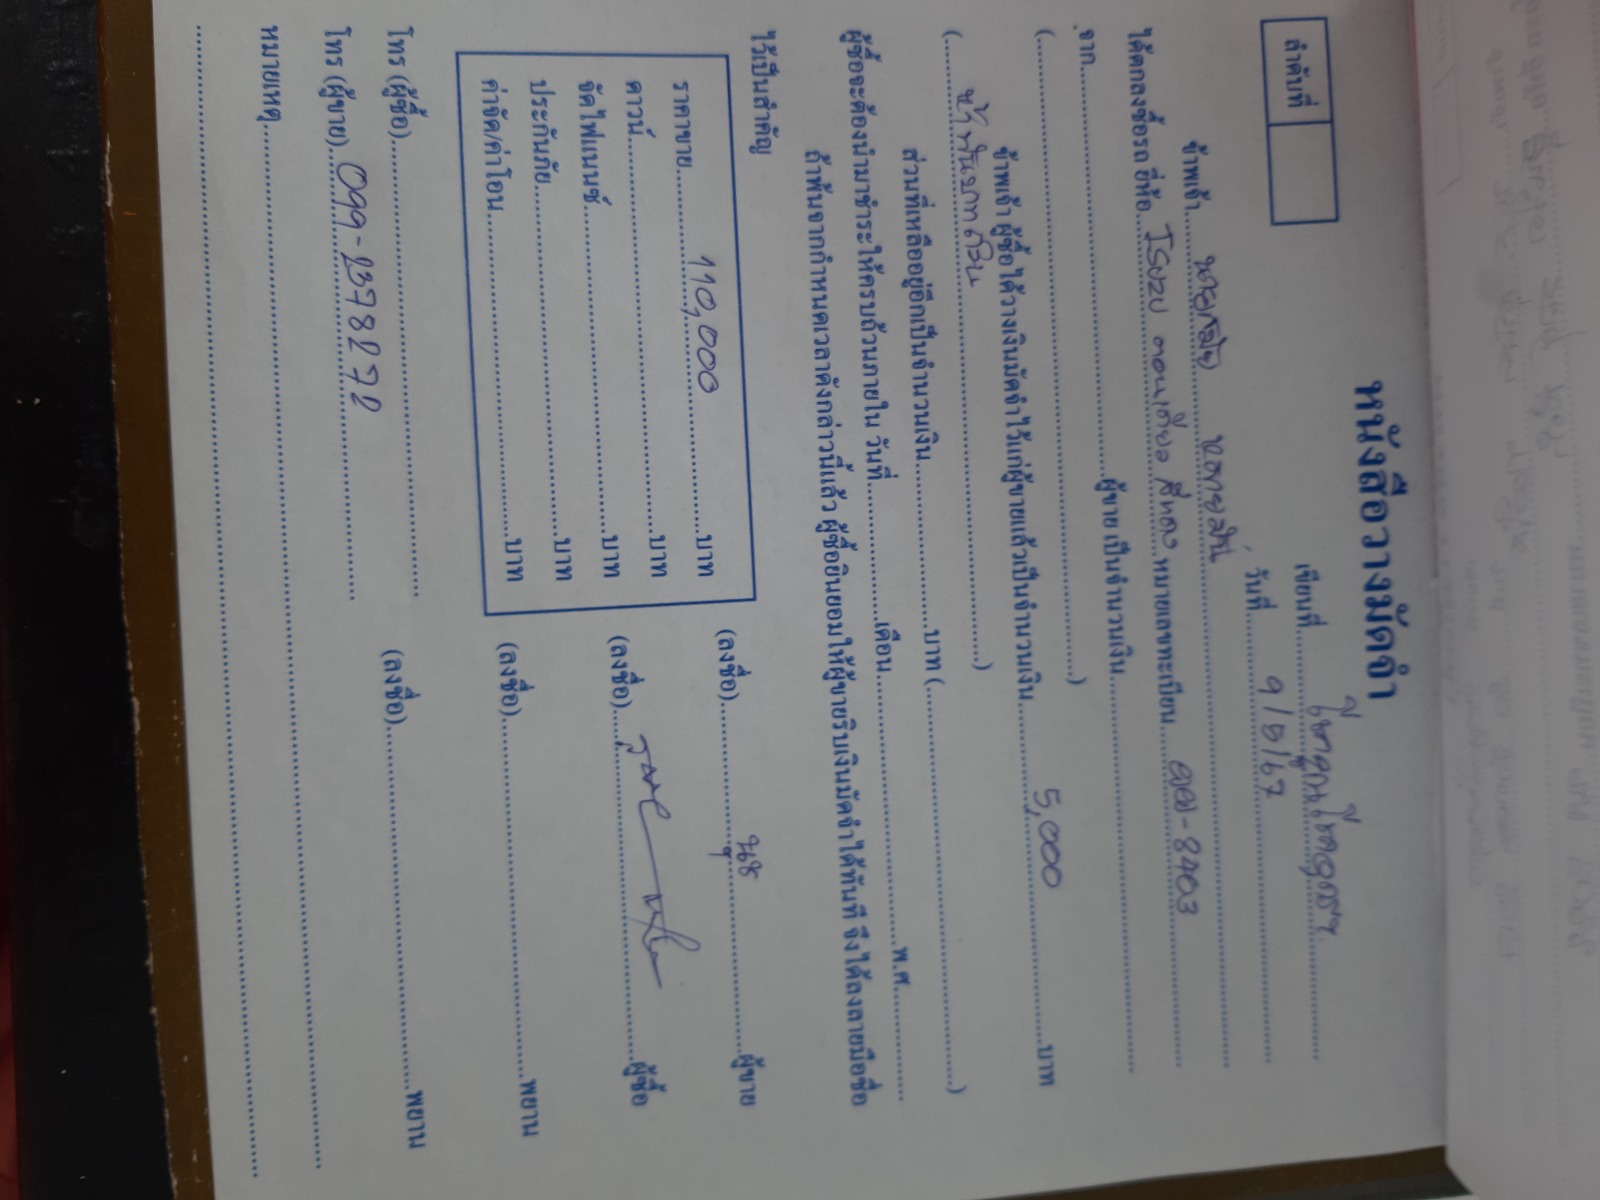 หนังสือวางมัดจำ
ลำดับที่
เขียนที่
วันที่ 9/5/67
ข้าพเจ้า นาย
ได้ตกลงซื้อรถ ยี่ห้อ ISUZU ตอนเดียว สีทอง หมายเลขทะเบียน -8403
จาก ผู้ขาย เป็นจำนวนเงิน
( )
ข้าพเจ้า ผู้ซื้อได้วางเงินมัดจำไว้แก่ผู้ขายแล้วเป็นจำนวนเงิน 5,000 บาท
( ห้าพันบาทถ้วน )
ส่วนที่เหลืออยู่อีกเป็นจำนวนเงิน บาท ( )
ผู้ซื้อจะต้องนำมาชำระให้ครบถ้วนภายใน วันที่ เดือน พ.ศ.
ถ้าพ้นจากกำหนดเวลาดังกล่าวนี้แล้ว ผู้ซื้อยินยอมให้ผู้ขายริบเงินมัดจำได้ทันที จึงได้ลงลายมือชื่อ
ไว้เป็นสำคัญ
ราคาขาย 110,000 บาท
ดาวน์ บาท
จัดไฟแนนซ์ บาท
ประกันภัย บาท
ค่าจัด/ค่าโอน บาท
(ลงชื่อ) นุช ผู้ขาย
(ลงชื่อ) ผู้ซื้อ
(ลงชื่อ) พยาน
(ลงชื่อ) พยาน
โทร (ผู้ซื้อ)
โทร (ผู้ขาย) 099-
หมายเหตุ